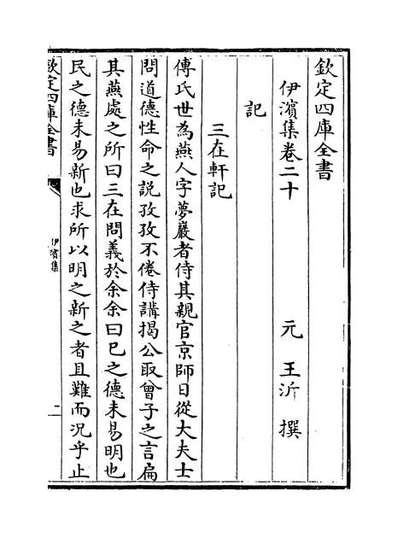 欽定四庫全書
伊濱集卷二十
元 王沂 撰
記
三在軒記
傅氏世為燕人字夢巖者侍其親官京師日從大夫士
問道德性命之説孜孜不倦侍講揭公取曾子之言扁
其燕處之所曰三在問義於余余曰已之德未易明也
民之德未易新也求所以明之新之者且難而况乎止
欽定四庫全書
伊濱集
二